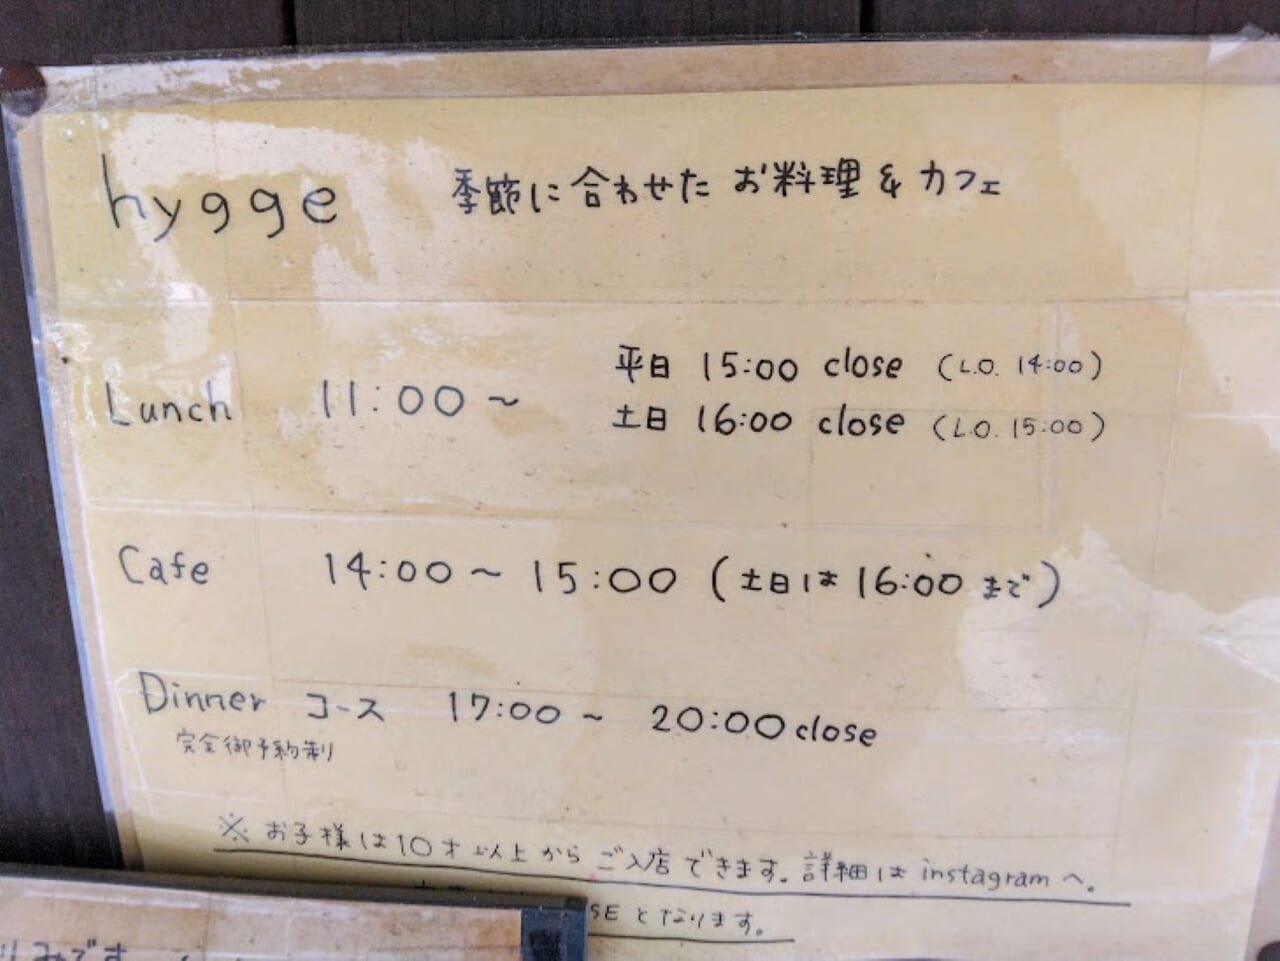 hygge 季節に合わせた お料理 & カフェ
Lunch 11:00 ~
平日 15:00 close (L.O. 14:00)
土日 16:00 close (L.O. 15:00)
Cafe 14:00 ~ 15:00 (土日は 16:00 まで)
Dinner コース 17:00 ~ 20:00 close
完全御予約制
※ お子様は10才以上から ご入店できます。詳細は instagram へ。
SE となります。
みです